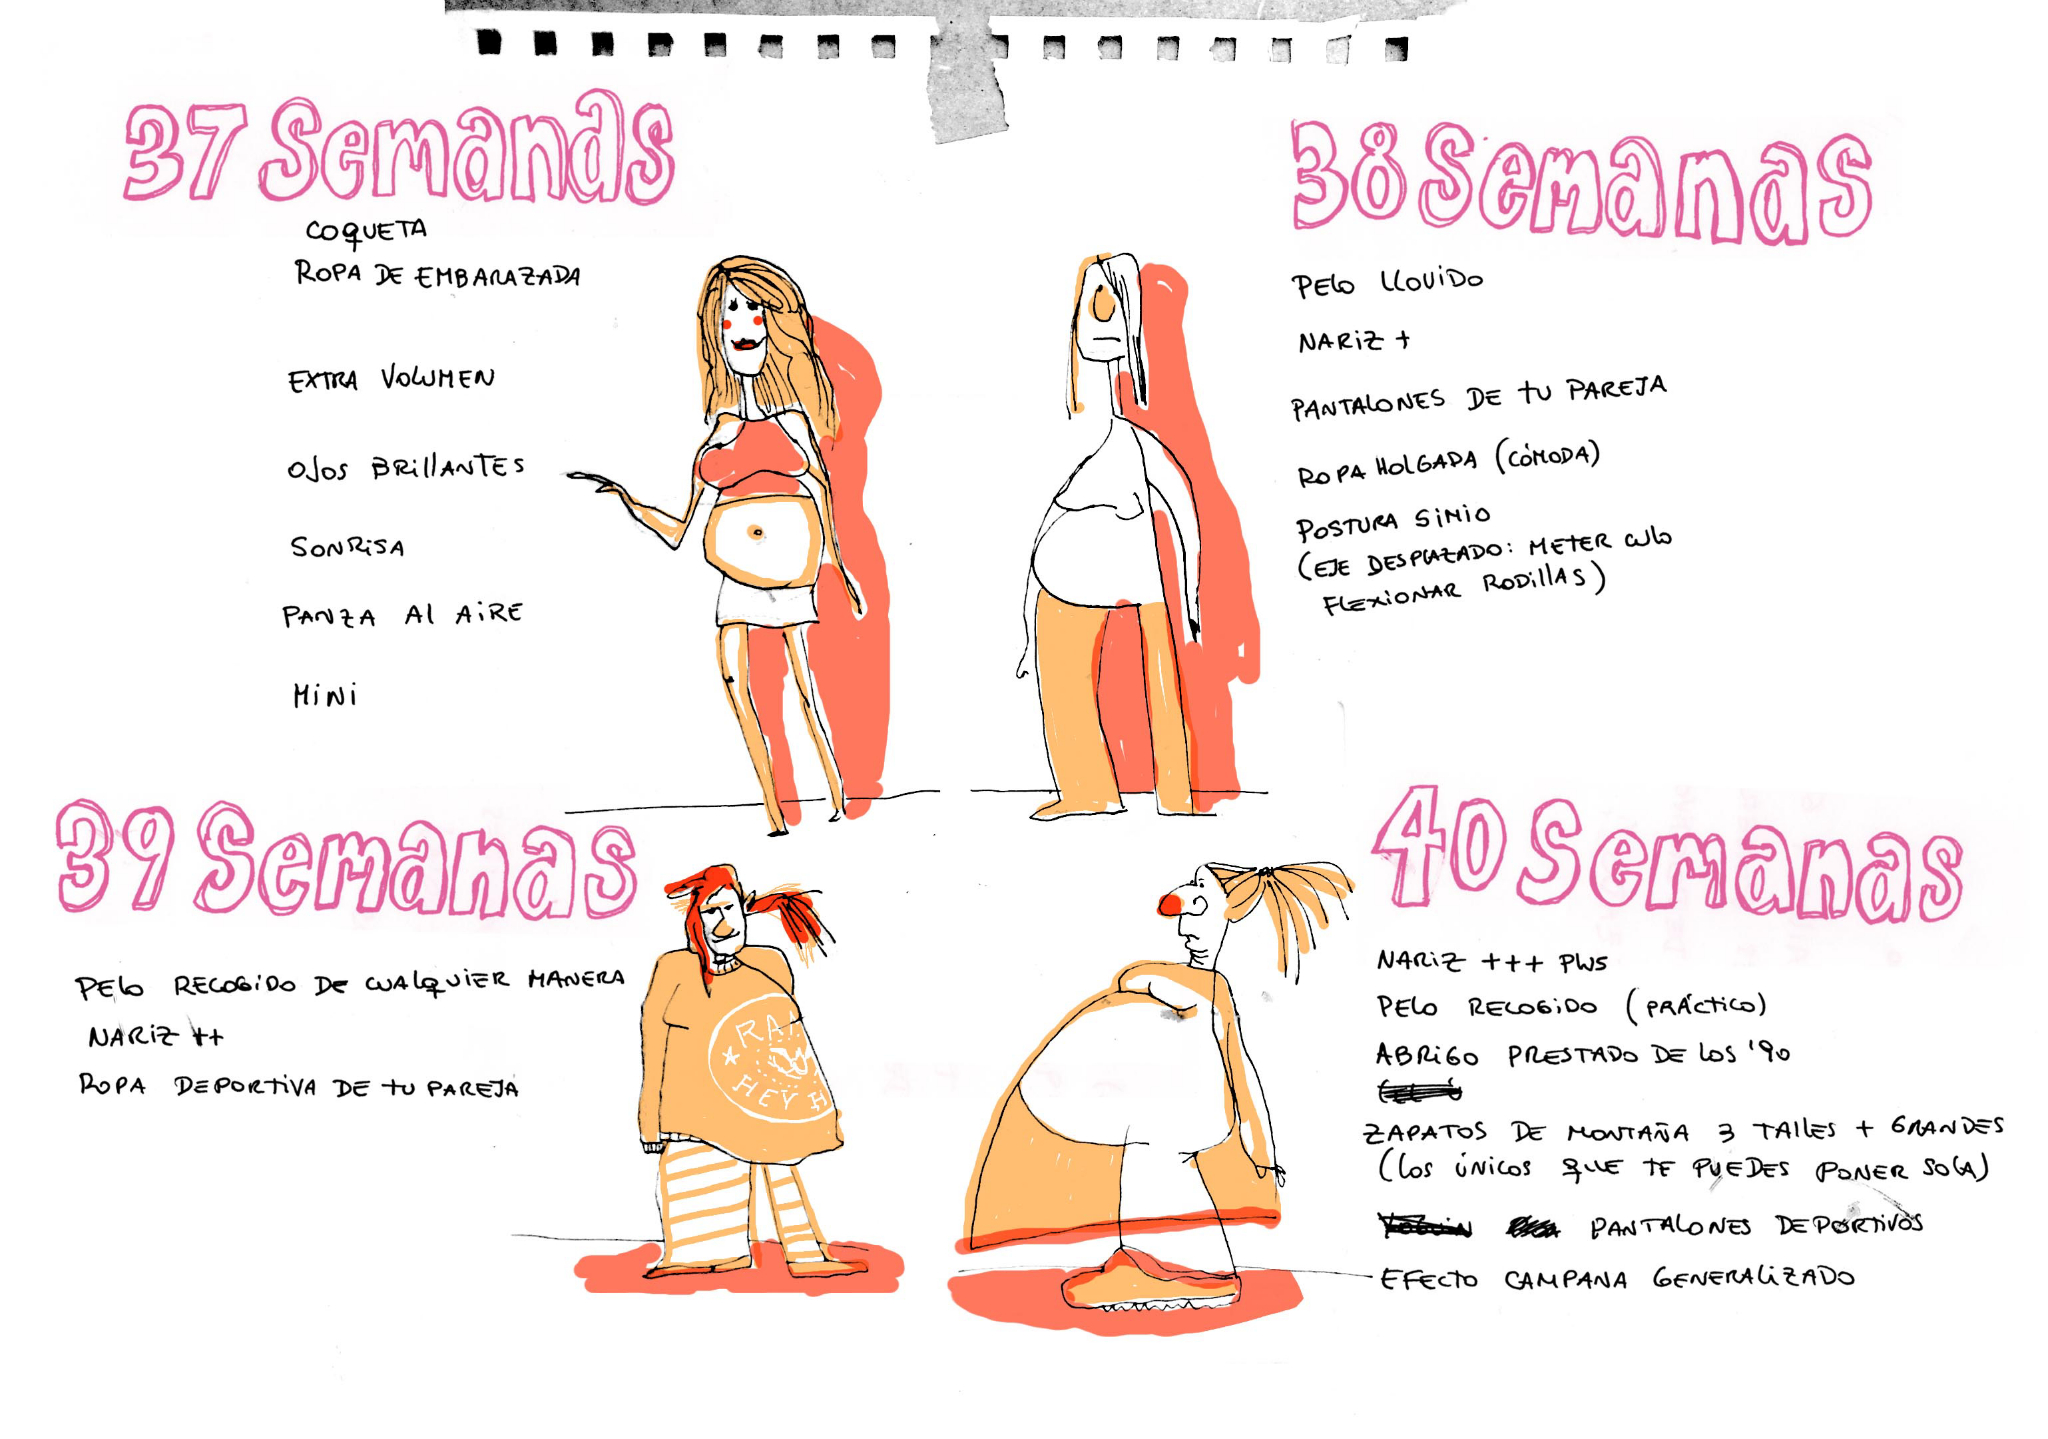 37 Semanas
COQUETA
ROPA DE EMBARAZADA
EXTRA VOLUMEN
OJOS BRILLANTES
SONRISA
PANZA AL AIRE
MINI
38 Semanas
PELO LLOVIDO
NARIZ +
PANTALONES DE TU PAREJA
ROPA HOLGADA (CÓMODA)
POSTURA SIMIO
(EJE DESPLAZADO: METER CULO
FLEXIONAR RODILLAS)
39 Semanas
PELO RECOGIDO DE CUALQUIER MANERA
NARIZ ++
ROPA DEPORTIVA DE TU PAREJA
RA
HEY H
40 Semanas
NARIZ +++ PLUS
PELO RECOGIDO (PRÁCTICO)
ABRIGO PRESTADO DE LOS '90
ZAPATOS DE MONTAÑA 3 TALLES + GRANDES
(LOS ÚNICOS QUE TE PUEDES PONER SOLA)
PANTALONES DEPORTIVOS
EFECTO CAMPANA GENERALIZADO